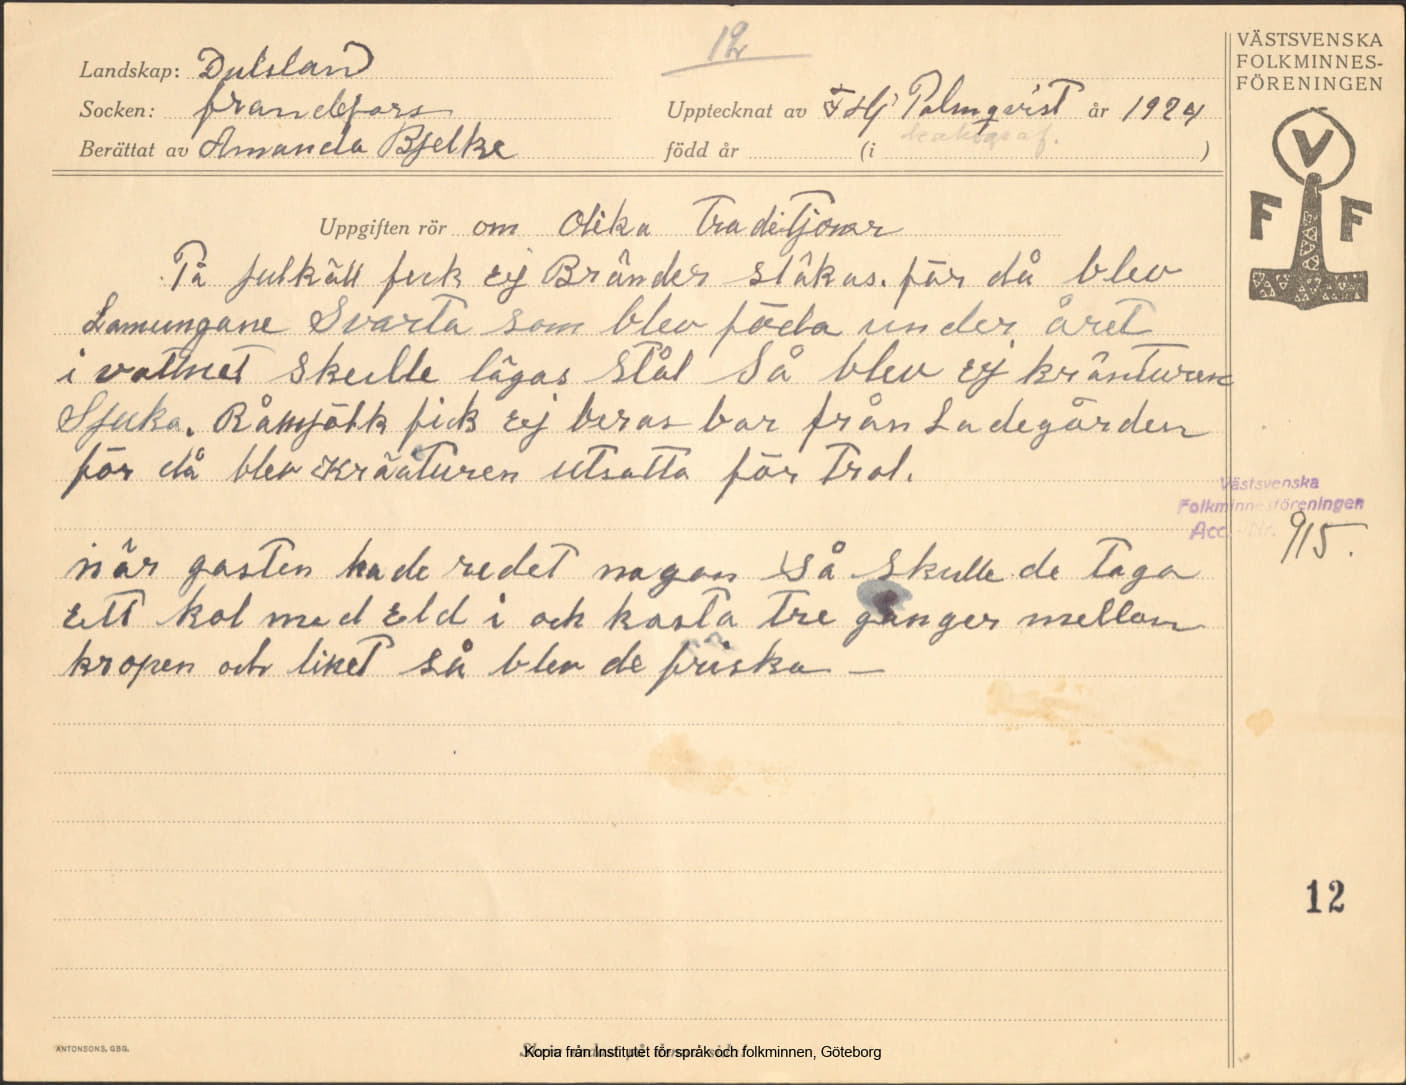 12
VÄSTSVENSKA
FOLKMINNES-
FÖRENINGEN
V
F F
Landskap: Dalsland
Socken: frändefors
Berättat av Amanda Bjelke
Upptecknat av F Hj Palmqvist år 1924
född år (i )
Uppgiften rör om Olika Traditjoner
På julkäll fick ej Bränder stôkas. för då blev
Lamungane Svarta som blev föda under året
i vattnet skulle lägas stål Så blev ej kränturen
Sjuka. Råmjölk fick ej beras bar från Ladegården
för då blev Kräaturen utsatta för Trol.
Västsvenska
Folkminnesföreningen
Acc. Nr. 915.
när gasten hade redet nagon Så skulle de taga
Ett kol med Eld i och kasta Tre gånger mellan
kropen och liket så blev de friska —
12
ANTONSONS, GBG.
Kopia från Institutet för språk och folkminnen, Göteborg